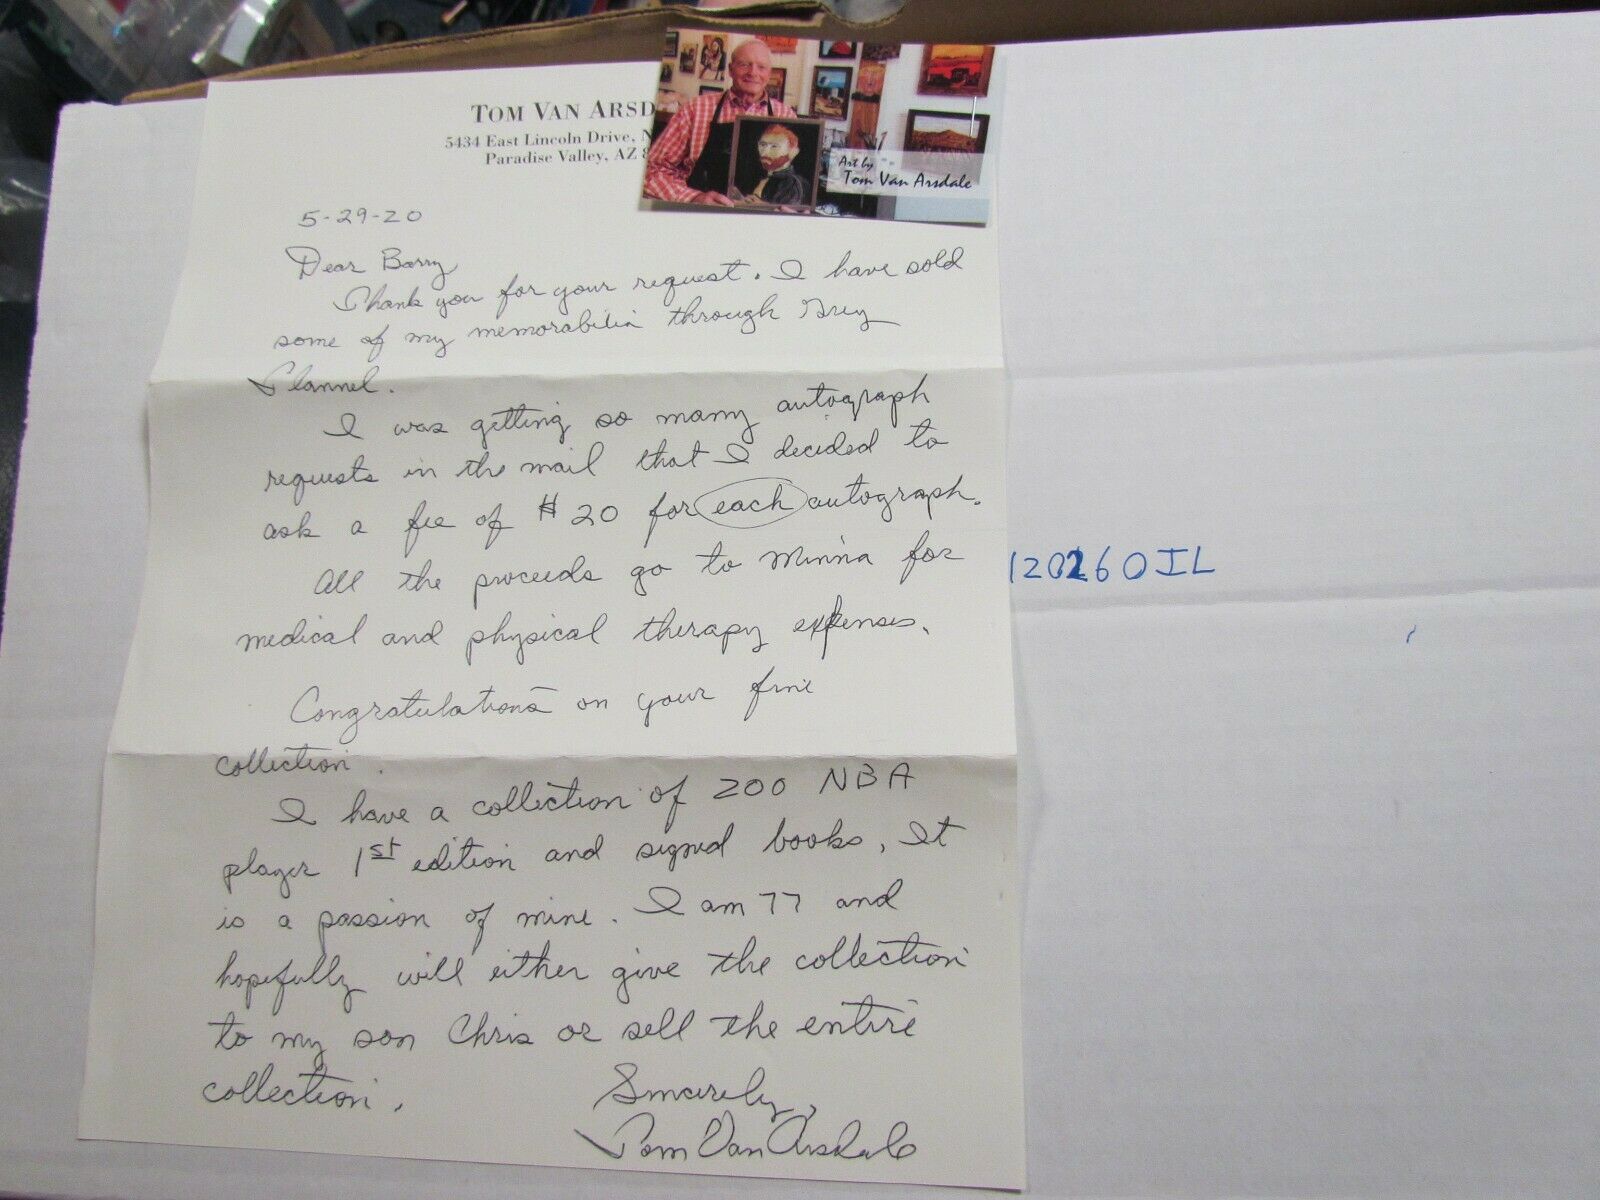 TOM VAN ARSD
5434 East Lincoln Drive, N
Paradise Valley, AZ 8
Art by
Tom Van Arsdale
5-29-20
Dear Barry
Thank you for your request. I have sold
some of my memorabilia through Grey
Flannel.
I was getting so many autograph
requests in the mail that I decided to
ask a fee of $20 for each autograph.
All the proceeds go to Minna for
medical and physical therapy expenses.
Congratulations on your fine
collection.
I have a collection of 200 NBA
player 1st edition and signed books. It
is a passion of mine. I am 77 and
hopefully will either give the collection
to my son Chris or sell the entire
collection.
Sincerely,
Tom Van Arsdale